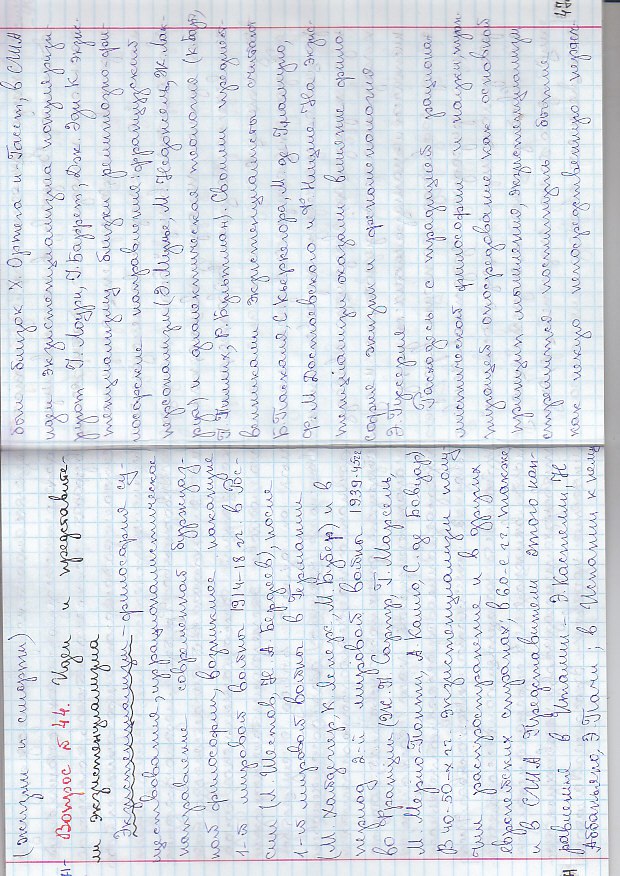 (жизни и смерти)
Вопрос № 44. Идеи и представите-
ли экзистенциализма
Экзистенциализм – философия су-
ществования, иррационалистическое
направление современной буржуаз-
ной философии, возникшее накануне
1-й мировой войны 1914-18 гг в Рос-
сии (Л. Шестов, Н. А. Бердяев), после
1-й мировой войны в Германии
(М. Хайдеггер, К. Ясперс, М. Бубер) и в
период 2-й мировой войны 1939-45гг
во Франции (Ж. П. Сартр, Г. Марсель,
М. Мерло-Понти, А. Камю, С. де Бовуар)
В 40-50-х гг. экзистенциализм полу-
чил распространение и в других
европейских странах; в 60-е гг. также
и в США. Представители этого нап-
равления в Италии – Э. Кастелли, Н.
Аббаньяно, Э. Пачи; в Испании к нему
был близок Х. Ортега-и-Гассет; в США
идеи экзистенциализма популяризи-
руют У. Лоури, У. Баррет, Дж. Эди. К экзис-
тенциализму близки религиозно-фи-
лософские направления: французский
персонализм (Э. Мунье, М. Недонсель, Ж. Лак-
руа) и диалектическая теология (К. Барт,
П. Тиллих, Р. Бультман). Своими предшест-
венниками экзистенциалисты считают
Б. Паскаля, С. Кьеркегора, М. де Унамуно,
Ф. М. Достоевского и Ф. Ницше. На экзис-
тенциализм оказали влияние фило-
софия жизни и феноменология
Э. Гуссерля
Расходясь с традицией рациона-
листической философии и науки, трак-
тующей опосредование как основной
принцип мышления, экзистенциализм
стремится постигнуть бытие
как некую непосредственную нерасч-